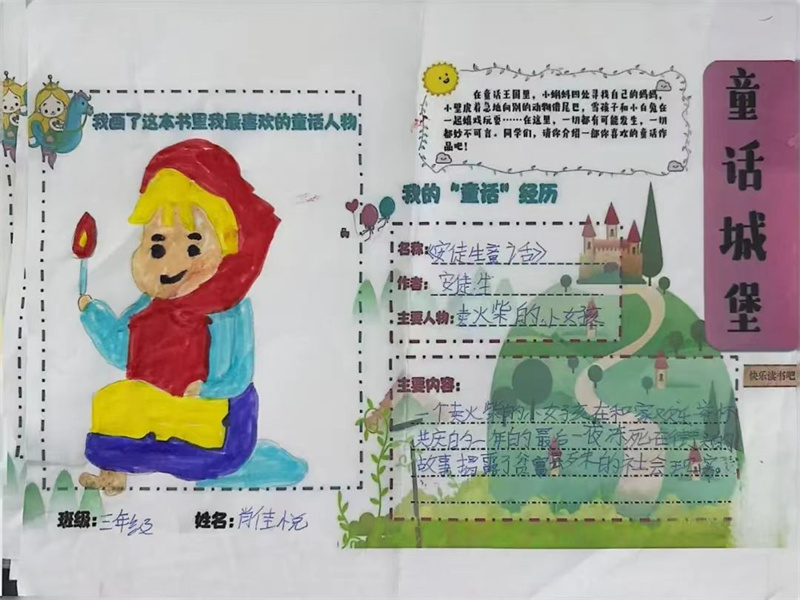 我画了这本书里我最喜欢的童话人物
班级:三年级
姓名:肖佳悦
在童话王国里,小蝌蚪四处寻找自己的妈妈,
小壁虎着急地向别的动物借尾巴,雪孩子和小白兔在
一起嬉戏玩耍……在这里,一切都有可能发生,一切
都妙不可言。同学们,请你介绍一部你喜欢的童话作
品吧!
我的“童话”经历
名称:《安徒生童话》
作者:安徒生
主要人物:卖火柴的小女孩
主要内容:
一个卖火柴的小女孩在和家欢年举杯
共庆的一年的最后一夜冻死在街头的
故事,揭露了
的社会
童话城堡
快乐读书吧